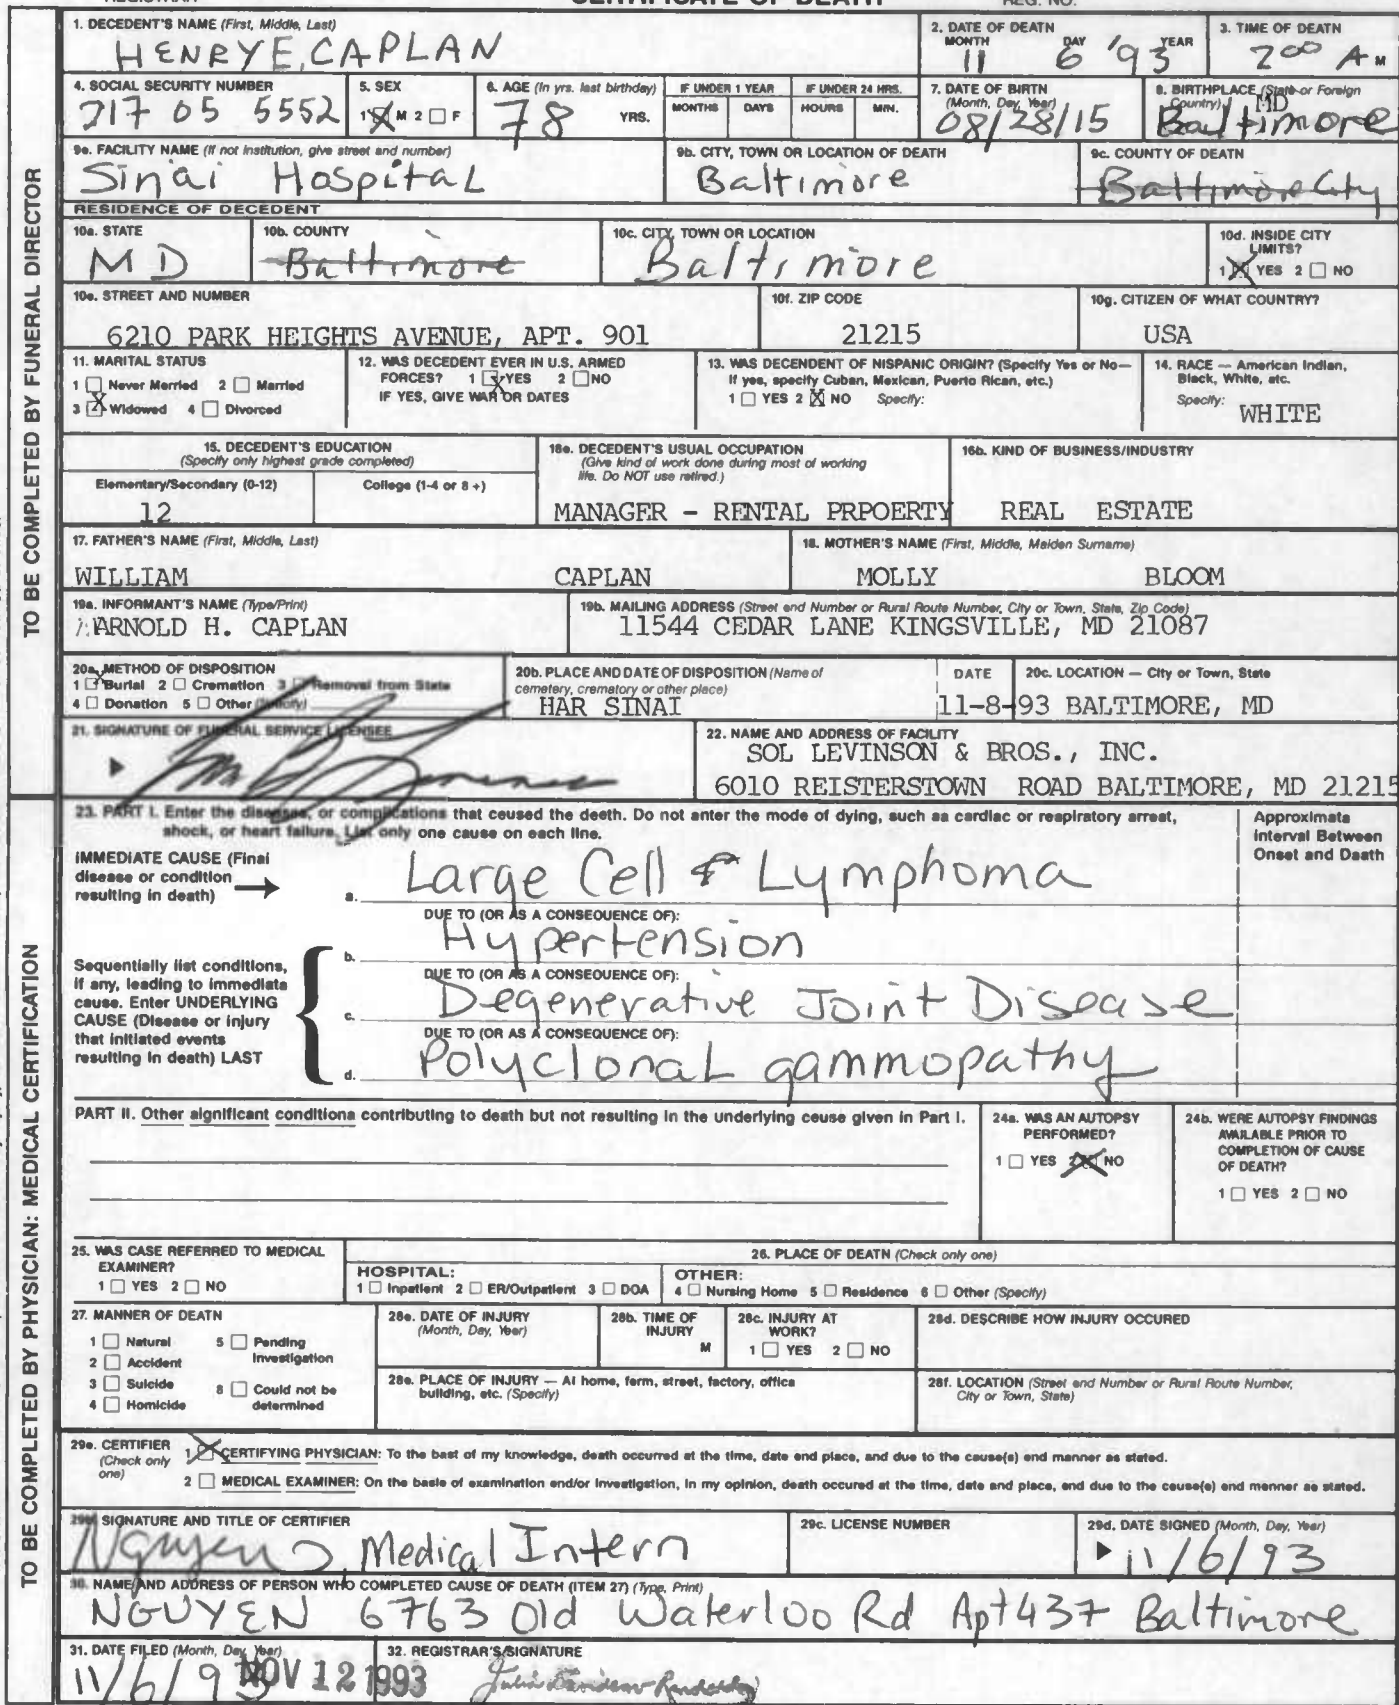 CERTIFICATE OF DEATH
REGISTRAR
REG. NO.
TO BE COMPLETED BY FUNERAL DIRECTOR
1. DECEDENT'S NAME (First, Middle, Last)
HENRY E. CAPLAN
2. DATE OF DEATH
MONTH DAY YEAR
11 6 '93
3. TIME OF DEATH
2 00 A M
4. SOCIAL SECURITY NUMBER
717 05 5552
5. SEX
1 X M 2 ☐ F
6. AGE (In yrs. last birthday)
78 YRS.
IF UNDER 1 YEAR
MONTHS DAYS
IF UNDER 24 HRS.
HOURS MIN.
7. DATE OF BIRTH
(Month, Day, Year)
08/28/15
8. BIRTHPLACE (State or Foreign
Country) MD
Baltimore
9a. FACILITY NAME (If not institution, give street and number)
Sinai Hospital
9b. CITY, TOWN OR LOCATION OF DEATH
Baltimore
9c. COUNTY OF DEATH
Baltimore City
RESIDENCE OF DECEDENT
10a. STATE
MD
10b. COUNTY
Baltimore
10c. CITY, TOWN OR LOCATION
Baltimore
10d. INSIDE CITY
LIMITS?
1 X YES 2 ☐ NO
10e. STREET AND NUMBER
6210 PARK HEIGHTS AVENUE, APT. 901
10f. ZIP CODE
21215
10g. CITIZEN OF WHAT COUNTRY?
USA
11. MARITAL STATUS
1 ☐ Never Married 2 ☐ Married
3 X Widowed 4 ☐ Divorced
12. WAS DECEDENT EVER IN U.S. ARMED
FORCES? 1 X YES 2 ☐ NO
IF YES, GIVE WAR OR DATES
13. WAS DECENDENT OF NISPANIC ORIGIN? (Specify Yes or No—
If yes, specify Cuban, Mexican, Puerto Rican, etc.)
1 ☐ YES 2 X NO Specify:
14. RACE — American Indian,
Black, White, etc.
Specify:
WHITE
15. DECEDENT'S EDUCATION
(Specify only highest grade completed)
Elementary/Secondary (0-12) College (1-4 or 8 +)
12
16a. DECEDENT'S USUAL OCCUPATION
(Give kind of work done during most of working
life. Do NOT use retired.)
MANAGER - RENTAL PRPOERTY
16b. KIND OF BUSINESS/INDUSTRY
REAL ESTATE
17. FATHER'S NAME (First, Middle, Last)
WILLIAM CAPLAN
18. MOTHER'S NAME (First, Middle, Maiden Surname)
MOLLY BLOOM
19a. INFORMANT'S NAME (Type/Print)
ARNOLD H. CAPLAN
19b. MAILING ADDRESS (Street and Number or Rural Route Number, City or Town, State, Zip Code)
11544 CEDAR LANE KINGSVILLE, MD 21087
20a. METHOD OF DISPOSITION
1 X Burial 2 ☐ Cremation 3 ☐ Removal from State
4 ☐ Donation 5 ☐ Other (Specify)
20b. PLACE AND DATE OF DISPOSITION (Name of
cemetery, crematory or other place)
HAR SINAI
DATE
11-8-93
20c. LOCATION — City or Town, State
BALTIMORE, MD
21. SIGNATURE OF FUNERAL SERVICE LICENSEE
22. NAME AND ADDRESS OF FACILITY
SOL LEVINSON & BROS., INC.
6010 REISTERSTOWN ROAD BALTIMORE, MD 21215
TO BE COMPLETED BY PHYSICIAN: MEDICAL CERTIFICATION
23. PART I. Enter the diseases, or complications that ceused the death. Do not enter the mode of dying, such aa cardiac or respiratory arrest,
shock, or heart failure. List only one cause on each line.
Approximata
Interval Between
Onset and Daath
IMMEDIATE CAUSE (Final
disease or condition
resulting in death) →
a. Large Cell & Lymphoma
DUE TO (OR AS A CONSEQUENCE OF):
b. Hypertension
DUE TO (OR AS A CONSEQUENCE OF):
c. Degenerative Joint Disease
DUE TO (OR AS A CONSEQUENCE OF):
d. Polyclonal gammopathy
Sequentially list conditions,
if any, leading to immediata
cause. Enter UNDERLYING
CAUSE (Disease or injury
that initiated events
resulting in death) LAST
PART II. Other aignificant conditiona contributing to death but not resulting in the underlying ceuse given in Part I.
24a. WAS AN AUTOPSY
PERFORMED?
1 ☐ YES 2 X NO
24b. WERE AUTOPSY FINDINGS
AVAILABLE PRIOR TO
COMPLETION OF CAUSE
OF DEATH?
1 ☐ YES 2 ☐ NO
25. WAS CASE REFERRED TO MEDICAL
EXAMINER?
1 ☐ YES 2 ☐ NO
26. PLACE OF DEATH (Check only one)
HOSPITAL:
1 ☐ Inpatient 2 ☐ ER/Outpatient 3 ☐ DOA
OTHER:
4 ☐ Nursing Home 5 ☐ Residence 6 ☐ Other (Specify)
27. MANNER OF DEATH
1 ☐ Natural 5 ☐ Pending
Investigation
2 ☐ Accident
3 ☐ Suicide 8 ☐ Could not be
determined
4 ☐ Homicide
28a. DATE OF INJURY
(Month, Day, Year)
28b. TIME OF
INJURY
M
28c. INJURY AT
WORK?
1 ☐ YES 2 ☐ NO
28d. DESCRIBE HOW INJURY OCCURED
28e. PLACE OF INJURY — At home, ferm, street, factory, office
building, etc. (Specify)
28f. LOCATION (Street end Number or Rural Route Number,
City or Town, State)
29a. CERTIFIER
(Check only
one)
1 X CERTIFYING PHYSICIAN: To the bast of my knowledge, death occurred at the time, date end place, and due to the cause(s) end manner as stated.
2 ☐ MEDICAL EXAMINER: On the basie of examination end/or investigation, in my opinion, death occured at the time, date and place, end due to the ceuse(e) end menner ae stated.
29b. SIGNATURE AND TITLE OF CERTIFIER
Nguyen Medical Intern
29c. LICENSE NUMBER
29d. DATE SIGNED (Month, Day, Year)
11/6/93
30. NAME AND ADDRESS OF PERSON WHO COMPLETED CAUSE OF DEATH (ITEM 27) (Type, Print)
NGUYEN 6763 Old Waterloo Rd Apt 437 Baltimore
31. DATE FILED (Month, Day, Year)
11/6/93 NOV 12 1993
32. REGISTRAR'S SIGNATURE